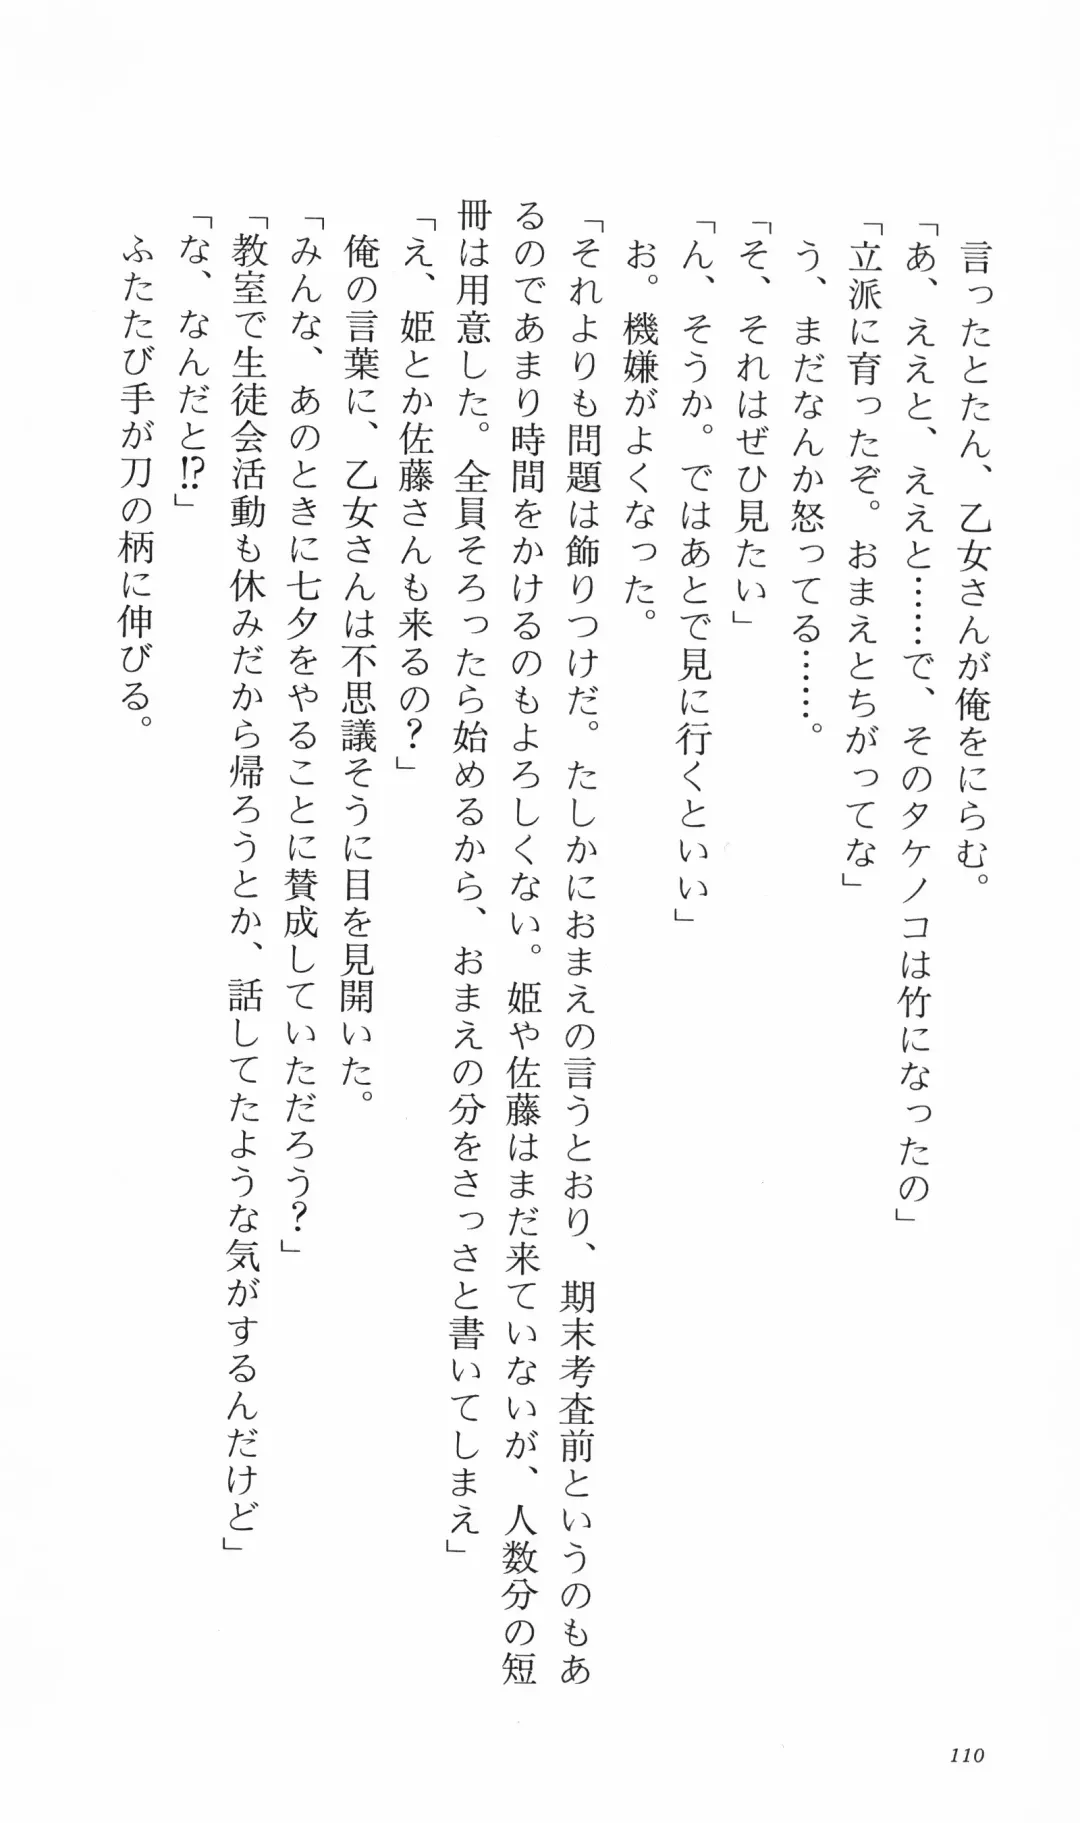 言ったとたん、乙女さんが俺をにらむ。
「あ、ええと、ええと……で、そのタケノコは竹になったの」
「立派に育ったぞ。おまえとちがってな」
う、まだなんか怒ってる……。
「そ、それはぜひ見たい」
「ん、そうか。ではあとで見に行くといい」
お。機嫌がよくなった。
「それよりも問題は飾りつけだ。たしかにおまえの言うとおり、期末考査前というのもあ
るのであまり時間をかけるのもよろしくない。姫や佐藤はまだ来ていないが、人数分の短
冊は用意した。全員そろったら始めるから、おまえの分をさっさと書いてしまえ」
「え、姫とか佐藤さんも来るの？」
俺の言葉に、乙女さんは不思議そうに目を見開いた。
「みんな、あのときに七夕をやることに賛成していただろう？」
「教室で生徒会活動も休みだから帰ろうとか、話してたような気がするんだけど」
「な、なんだと!?」
ふたたび手が刀の柄に伸びる。
110